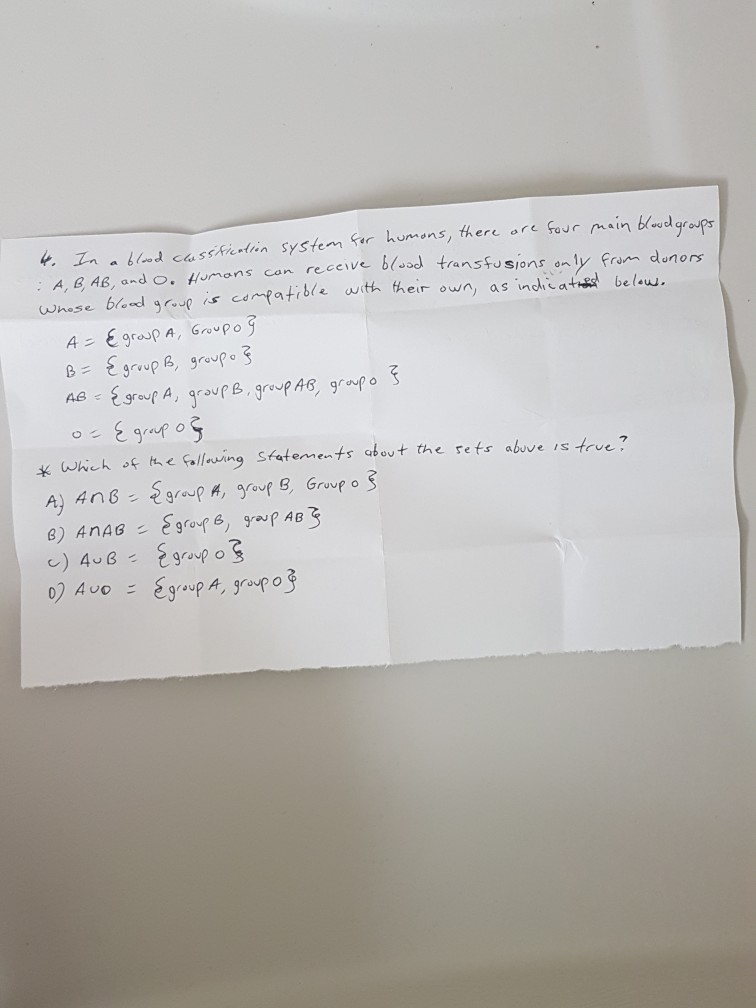 4. In a blood classification system for humans, there are four main blood groups
: A, B, AB, and O. Humans can receive blood transfusions only from donors
whose blood group is compatible with their own, as indicated below.
A = {group A, Group O}
B = {group B, group o}
AB = {group A, group B, group AB, group o}
O = {group o}
* Which of the following statements about the sets above is true?
A) A∩B = {group A, group B, Group o}
B) A∩AB = {group B, group AB}
c) A∪B = {group o}
D) A∪O = {group A, group o}